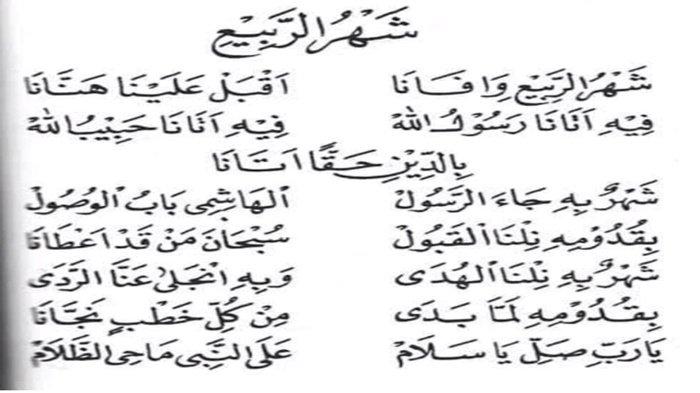 شَهْرُ الرَّبِيْعِ
شَهْرُ الرَّبِيْعِ وَافَانَا اَقْبَلْ عَلَيْنَا هَنَّانَا
فِيْهِ اَتَانَا رَسُوْلُ اللهْ فِيْهِ اَتَانَا حَبِيْبُ اللهْ
بِالدِّيْنِ حَقًّا اَتَانَا
شَهْرٌ بِهِ جَاءَ الرَّسُوْلْ اَلْهَاشِمِى بَابُ الْوُصُوْلْ
بِقُدُوْمِهِ نِلْنَا الْقَبُوْلْ سُبْحَانَ مَنْ قَدْ اَعْطَانَا
شَهْرٌ بِهِ نِلْنَا الْهُدَى وَبِهِ انْجَلَىٰ عَنَّا الرَّدَى
بِقُدُوْمِهِ لَمَّا بَدَى مِنْ كُلِّ خَطْبٍ نَجَّانَا
يَارَبِّ صَلِّ يَا سَلَامْ عَلَى النَّبِى مَاحِى الظَّلَامْ